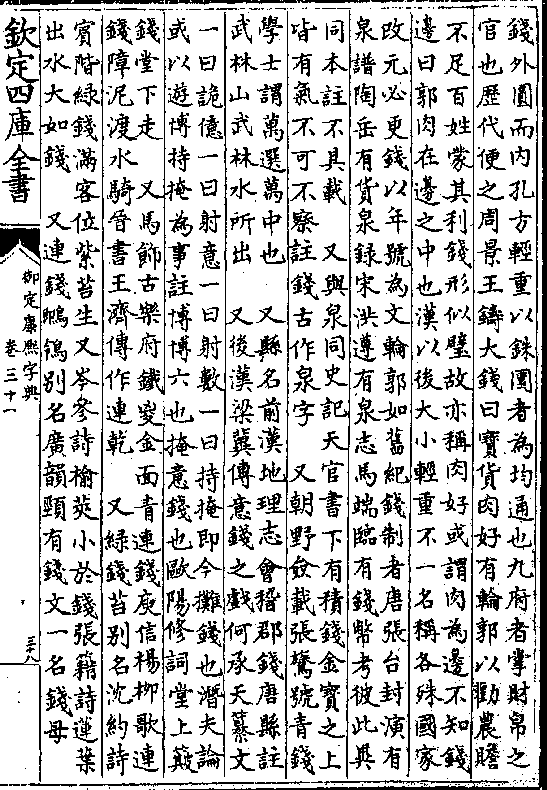 錢外圜而内孔方輕重以銖圜者為均通也九府者掌財帛之
官也歴代便之周景王鑄大錢曰寶貨肉好有輪郭以勸農贍
不足百姓蒙其利錢形似璧故亦稱肉好或謂肉為邊不知錢
邊曰郭肉在邊之中也漢以後大小輕重不一名稱各殊國家
改元必更錢以年號為文輪郭如舊紀錢制者唐張台封演有
泉譜陶岳有貨泉録宋洪遵有泉志馬端臨有錢幣考彼此異
同本註不具載 又與泉同史記天官書下有積錢金寶之上
皆有氣不可不察註錢古作泉字 又朝野僉載張鷟號青錢
學士謂萬選萬中也 又縣名前漢地理志會稽郡錢唐縣註
武林山武林水所出 又後漢梁冀傳意錢之戲何承天纂文
一曰詭億一曰射意一曰射數一曰持掩即今攤錢也潛夫論
或以遊博持掩為事註博博六也掩意錢也歐陽修詞堂上簸
錢堂下走 又馬飾古樂府鐵㚇金面青連錢庾信楊柳歌連
錢障泥渡水騎晉書王濟傳作連乾 又緑錢苔别名沈約詩
賓階緑錢滿客位紫苔生又岑參詩榆莢小於錢張籍詩蓮葉
出水大如錢 又連錢鶺鴒别名廣韻頸有錢文一名錢母
欽定四庫全書
御定康熙字典
卷三十一
三十八